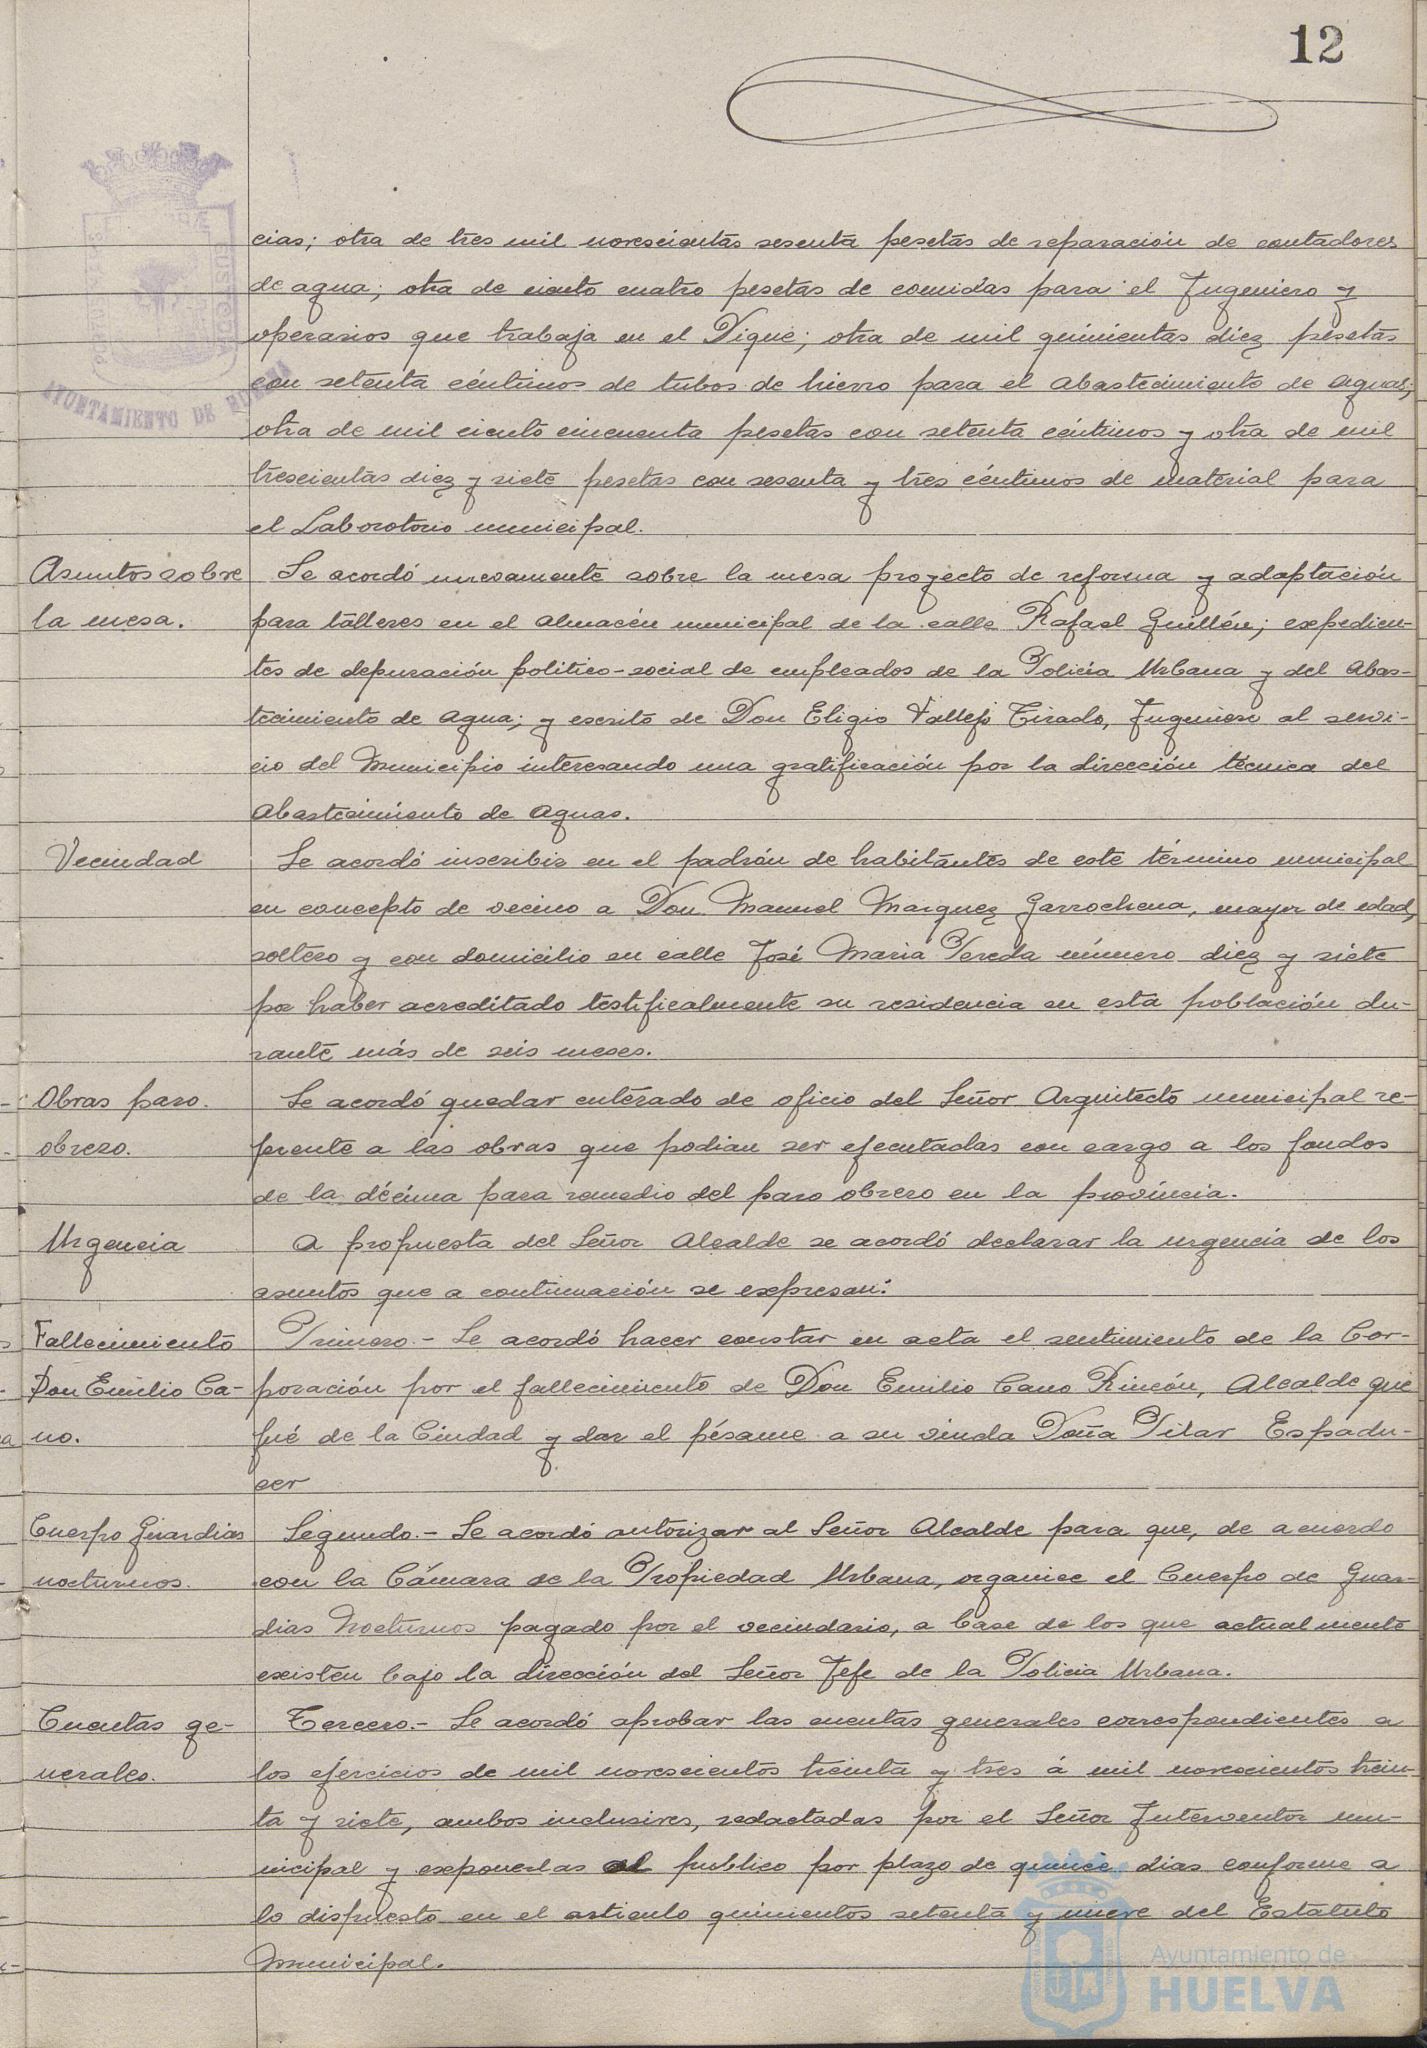 12
cias; otra de tres mil novescientas sesenta pesetas de reparación de contadores
de agua; otra de ciento cuatro pesetas de comidas para el Ingeniero y
operarios que trabaja en el Dique; otra de mil quinientas diez pesetas
con setenta céntimos de tubos de hierro para el Abastecimiento de Aguas;
otra de mil ciento cincuenta pesetas con setenta céntimos y otra de mil
trescientas diez y siete pesetas con sesenta y tres céntimos de material para
el Laboratorio municipal.
AYUNTAMIENTO DE HUELVA
Asuntos sobre
la mesa.
Se acordó nuevamente sobre la mesa proyecto de reforma y adaptación
para talleres en el Almacén municipal de la calle Rafael Guillén; expedien-
tes de depuración politico-social de empleados de la Policía Urbana y del Abas-
tecimiento de Agua; y escrito de Don Eligio Vallejo Tirado, Ingeniero al servi-
cio del Municipio interesando una gratificación por la dirección técnica del
Abastecimiento de Aguas.
Vecindad
Se acordó inscribir en el padrón de habitantes de este término municipal
en concepto de vecino a Don Manuel Marquez Garrochena, mayor de edad,
soltero y con domicilio en calle José Maria Pereda número diez y siete
por haber acreditado testificalmente su residencia en esta población du-
rante más de seis meses.
Obras paro
obrero.
Se acordó quedar enterado de oficio del Señor Arquitecto municipal re-
ferente a las obras que podian ser ejecutadas con cargo a los fondos
de la décima para remedio del paro obrero en la provincia.
Urgencia
A propuesta del Señor Alcalde se acordó declarar la urgencia de los
asuntos que a continuación se expresan:
Fallecimiento
Don Emilio Ca-
no.
Primero.- Se acordó hacer constar en acta el sentimiento de la Cor-
poración por el fallecimiento de Don Emilio Cano Rincón, Alcalde que
fué de la Ciudad y dar el pésame a su viuda Doña Pilar Espadu-
cer
Cuerpo Guardias
nocturnos.
Segundo.- Se acordó autorizar al Señor Alcalde para que, de acuerdo
con la Cámara de la Propiedad Urbana, organice el Cuerpo de Guar-
dias Nocturnos pagado por el vecindario, a base de los que actualmente
existen bajo la dirección del Señor Jefe de la Policia Urbana.
Cuentas ge-
nerales.
Tercero.- Se acordó aprobar las cuentas generales correspondientes a
los ejercicios de mil novescientos treinta y tres á mil novescientos trein-
ta y siete, ambos inclusives, redactadas por el Señor Interventor mu-
nicipal y exponerlas al publico por plazo de quince dias conforme a
lo dispuesto en el articulo quinientos setenta y nueve del Estatuto
Municipal.
Ayuntamiento de
HUELVA